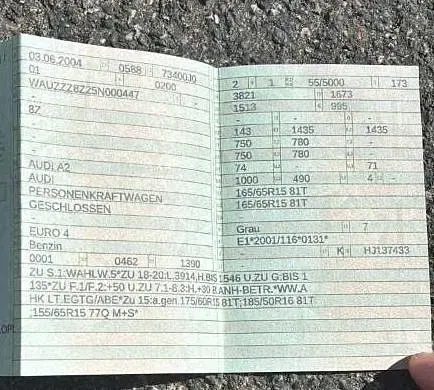 03.06.2004 0588 73400J0
01 0200
WAUZZZ8Z25N000447 -
-
8Z
-
-
AUDI A2
AUDI
PERSONENKRAFTWAGEN
GESCHLOSSEN
-
EURO 4
Benzin
0001 0462 1390
2 1 55/5000 173
3821 1673
1513 995
- - -
143 1435 1435
750 780 -
750 780 -
74 71
1000 490 4 -
165/65R15 81T
165/65R15 81T
-
Grau 7
E1*2001/116*0131*
- K HJ137433
ZU S.1:WAHLW.5*ZU 18-20:L.3914,H.BIS1546 U.ZU G:BIS 1
135*ZU F.1/F.2:+50 U.ZU 7.1-8.3:H.+30 B.ANH-BETR.*WW.A
HK LT.EGTG/ABE*Zu 15:a.gen.175/60R15 81T;185/50R16 81T
;155/65R15 77Q M+S*